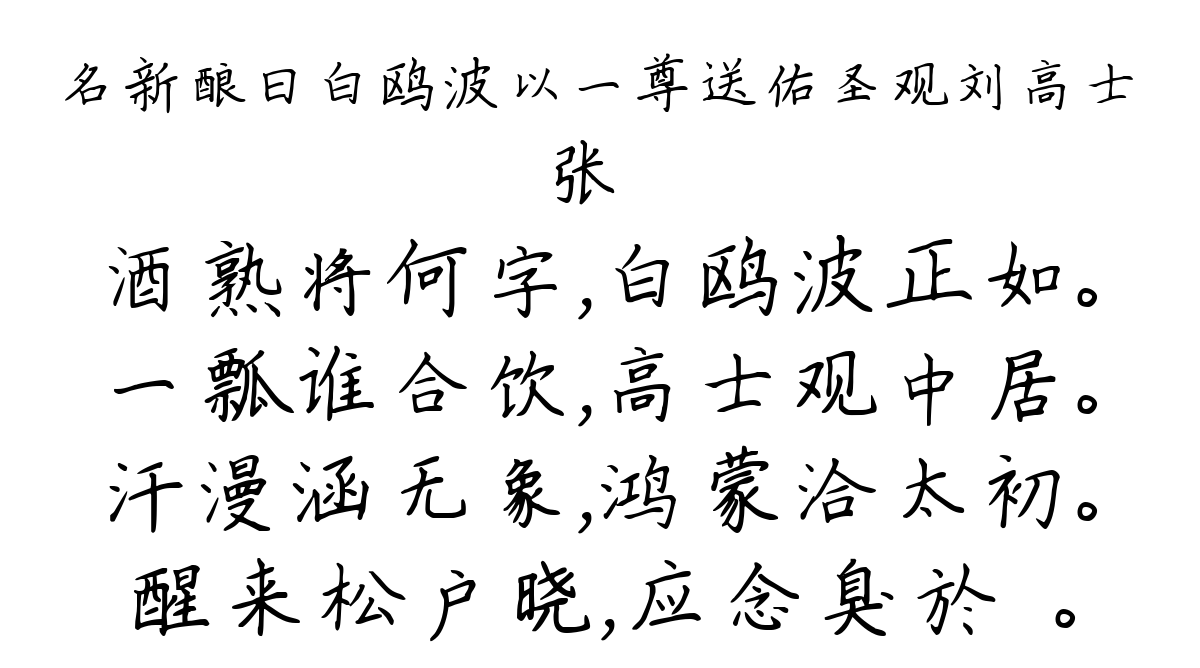 名新酿曰白鸥波以一尊送佑圣观刘高士
张
酒熟将何字,白鸥波正如。
一瓢谁合饮,高士观中居。
汗漫涵无象,鸿蒙洽太初。
醒来松户晓,应念臭於 。